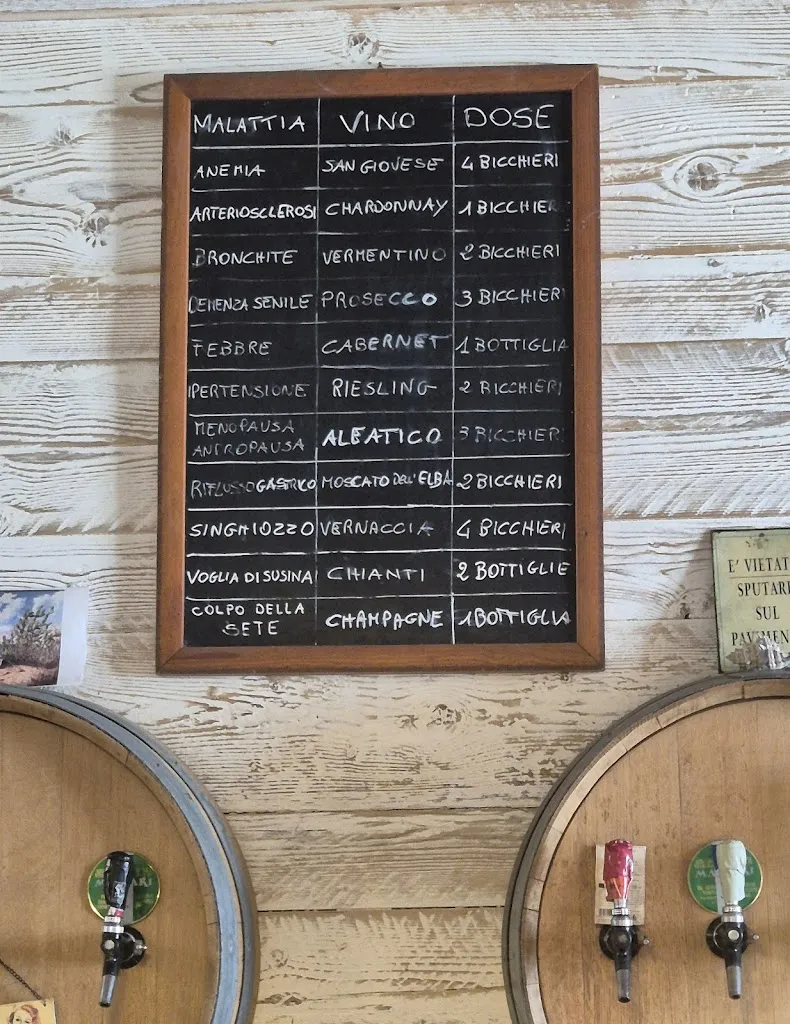 MALATTIA VINO DOSE
ANEMIA SANGIOVESE 4 BICCHIERI
ARTERIOSCLEROSI CHARDONNAY 1 BICCHIER
BRONCHITE VERMENTINO 2 BICCHIERI
DEMENZA SENILE PROSECCO 3 BICCHIERI
FEBBRE CABERNET 1 BOTTIGLIA
IPERTENSIONE RIESLING 2 BICCHIERI
MENOPAUSA
ANTROPAUSA ALEATICO 3 BICCHIERI
RIFLUSSO GASTRICO MOSCATO DELL'ELBA 2 BICCHIERI
SINGHIOZZO VERNACCIA 4 BICCHIERI
VOGLIA DI SUSINA CHIANTI 2 BOTTIGLIE
COLPO DELLA
SETE CHAMPAGNE 1 BOTTIGLIA
E' VIETAT
SPUTARE
SUL
PAVIMEN